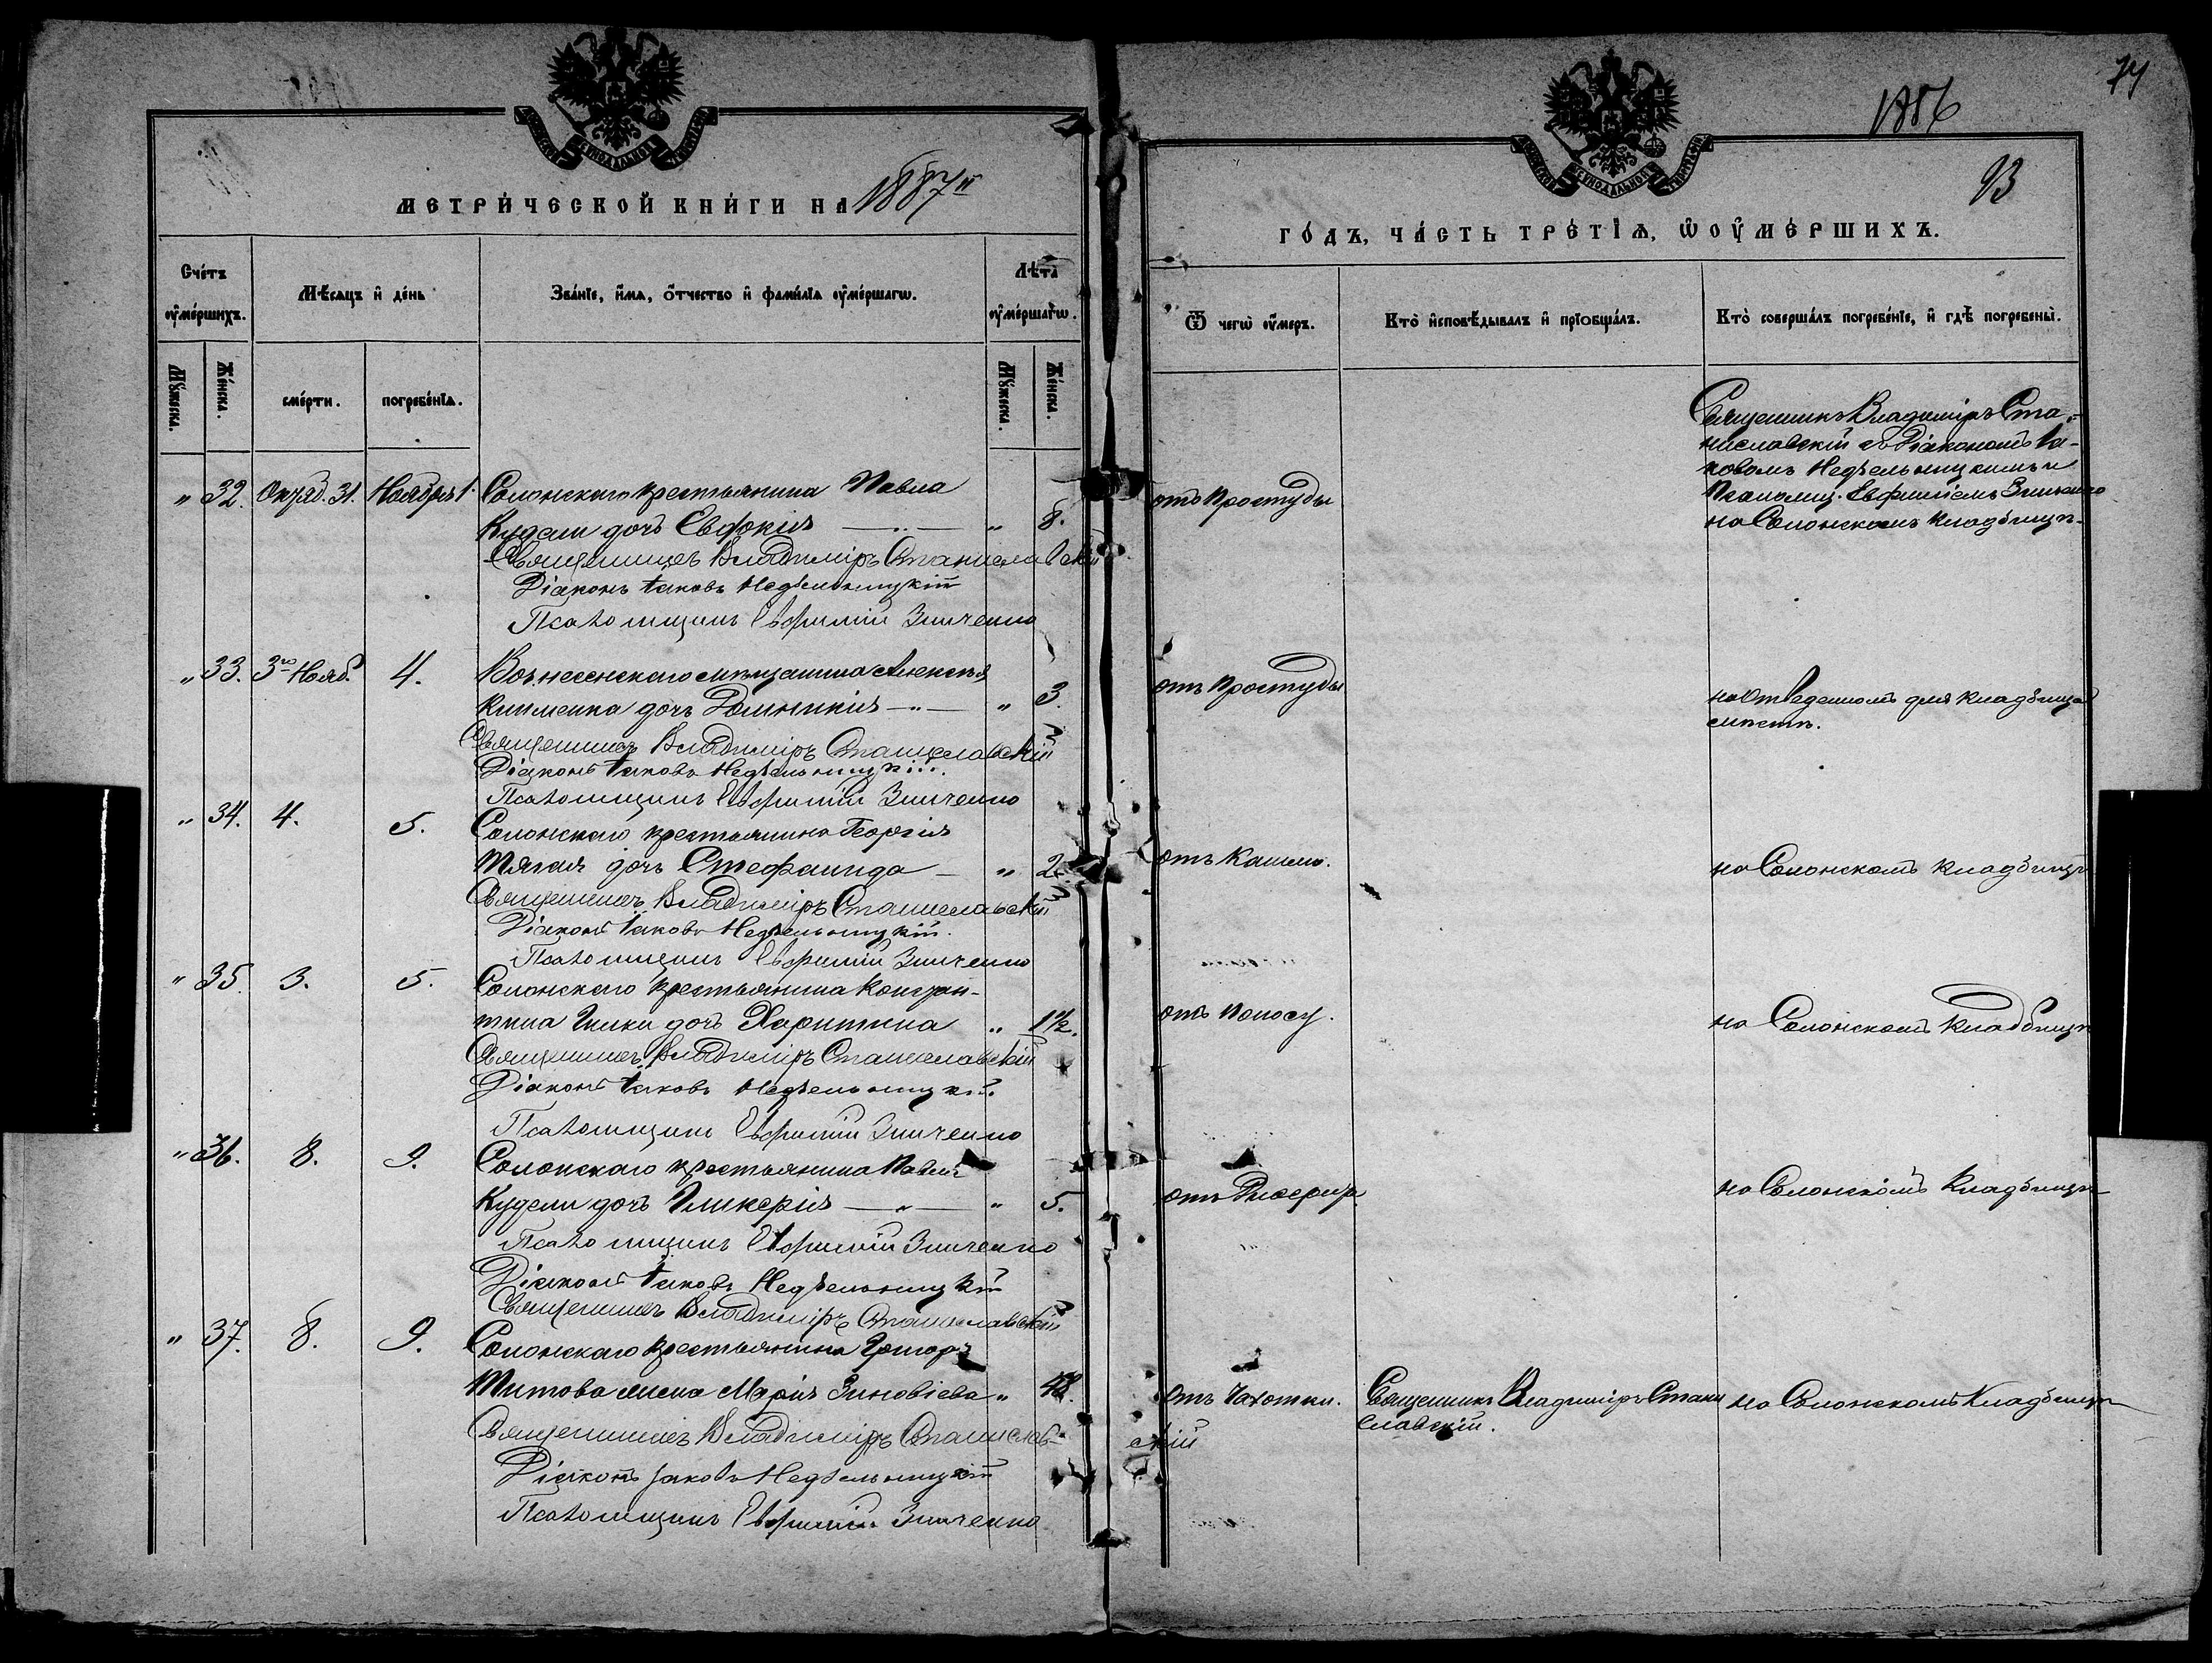 МЕТРИЧЕСКОЙ КНИГИ НА 1887й
Счетъ умершихъ.
Мѣсяцъ и день
Званіе, имя, отчество и фамилія умершагѡ.
Лѣта умершагѡ.
Мужеска. Женска.
смерти. погребенія.
Мужеска. Женска.
„ 32. Октяб. 31. Ноября 1. Солонскаго крестьянина Павла
Кудели дочь Евдокія „ 8.
Священникъ Владиміръ Станиславскій
Діаконъ Іаковъ Недѣльницкій
Псаломщикъ Евфимій Зинченко
„ 33. 3го Нояб. 4. Вознесенскаго мѣщанина Алексѣя
Клименка дочь Домникія „ 3.
Священникъ Владиміръ Станиславскій
Діаконъ Іаковъ Недѣльницкій.
Псаломщикъ Евфимій Зинченко
„ 34. 4. 5. Солонскаго крестьянина Георгія
Тягая дочь Стефанида „ 2.
Священникъ Владиміръ Станиславскій
Діаконъ Іаковъ Недѣльницкій.
Псаломщикъ Евфимій Зинченко
„ 35. 3. 5. Солонскаго крестьянина Констан-
тина дочь Харитина „ 1½.
Священникъ Владиміръ Станиславскій
Діаконъ Іаковъ Недѣльницкій.
Псаломщикъ Евфимій Зинченко
„ 36. 8. 9. Солонскаго крестьянина Павла
Кудели дочь Гликерія „ 5.
Псаломщикъ Евфимій Зинченко
Діаконъ Іаковъ Недѣльницкій
Священникъ Владиміръ Станиславскій
„ 37. 8. 9. Солонскаго крестьянина Григор.
Титова жена Марія Зиновіева „ 48.
Священникъ Владиміръ Станислав-
скій
Діаконъ Іаковъ Недѣльницкій
Псаломщикъ Евфимій Зинченко
74
1886
93
ГОДЪ, ЧАСТЬ ТРЕТІѦ, Ѡ ОУМЕРШИХЪ.
Ѿ чегѡ умеръ.
Кто исповѣдывалъ и пріобщалъ.
Кто совершалъ погребеніе, и гдѣ погребены.
Священникъ Владиміръ Ста-
ниславскій съ Діакономъ Іа-
ковомъ Недѣльницкимъ и
Псаломщ. Евфиміемъ Зинченко
отъ Простуды на Солонскомъ кладбищѣ.
отъ Простуды на отведенномъ для кладбища
мѣстѣ.
отъ Кашлю. на Солонскомъ кладбищѣ
отъ Поносу. на Солонскомъ кладбищѣ
отъ Дифтерита на Солонскомъ кладбищѣ
отъ Чахотки. Священникъ Владиміръ Стани
славскій. на Солонскомъ кладбищѣ